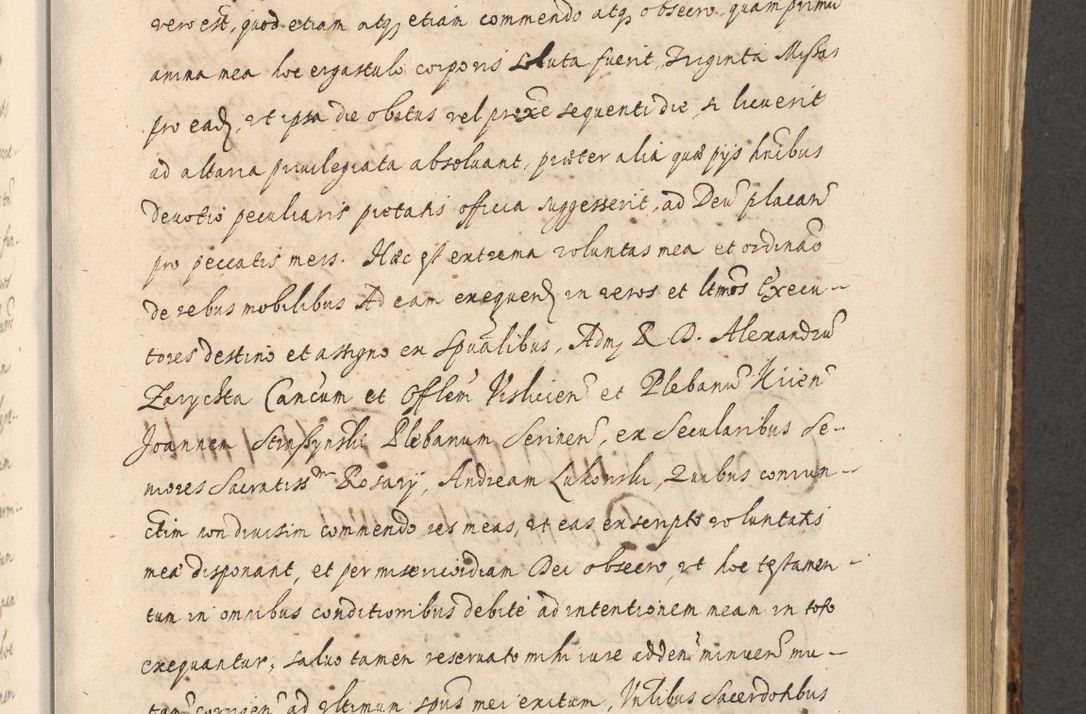 vero est, quod etiam atq, etiam commendo atq, obsecro, quam primũ
anima mea hoc ergastulo corporis soluta fuerit, Triginta Missas
pro ead, ut ipsa die obitus vel proxẽ sequenti die, si licuerit
ad altaria privilegiata absolvant, præter alia quæ pijs hñibus
devotio peculiaris pietatis officia suggesserit, ad Deũ placanď
pro peccatis meis. Hæc est extrema voluntas mea et ordinão
de rebus mobilibus Ad eam exequend in veros et ltmõs Execu-
tores destino et assigno ex spũalibus, Adm R. D. Alexandrũ
Zarychta Cancũm et Offlem Vislicieñ et Plebanũ Kijeñ
Joannem Plebanum Serineñ, ex Secularibus Se-
niores Sacratissmi Rosarij, Andream Lukowski, Quibus coniun-
ctim non divisim commendo res meas, ut eas ex scripto voluntatis
meæ disponant, et per misericordiam Dei obsecro, ut hoc testamen-
tum in omnibus conditionibus debitè ad intentionem meam in toto
exequantur; salvo tamen reservato mihi iure addeñ minueñ mu-
tañ corrigeñ ad ultimum spũs mei exitum, Vñlibus Sacerdotibus